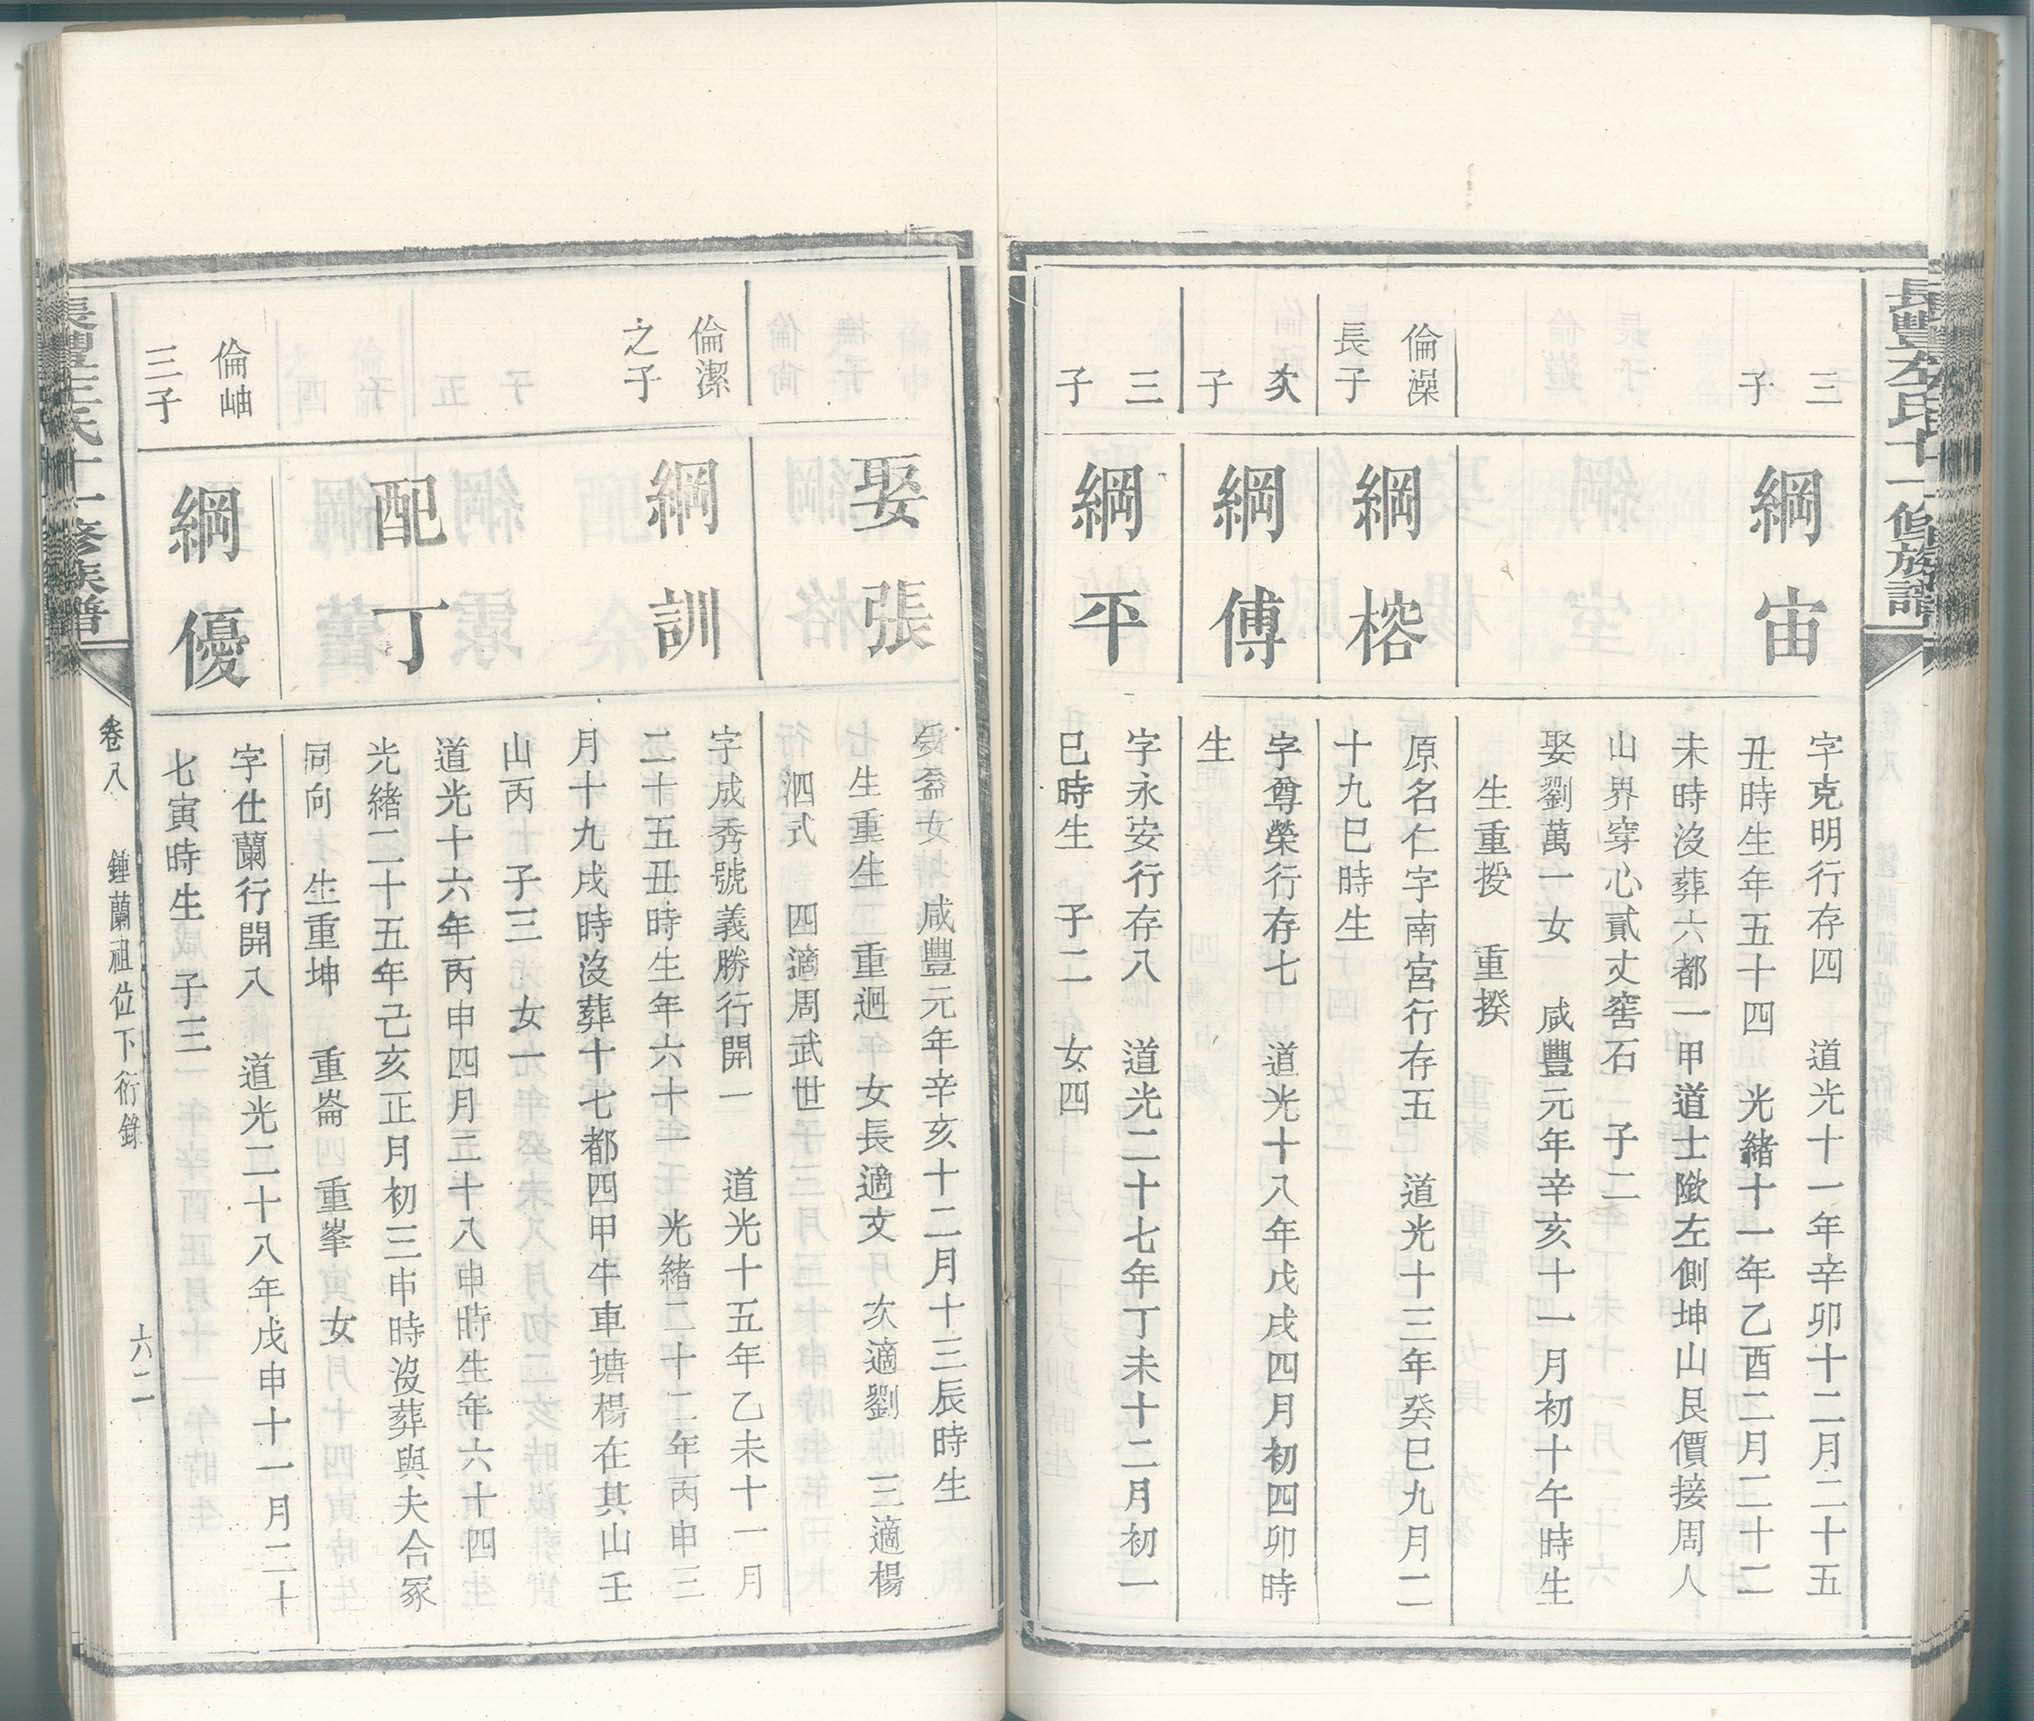 三
子
綱宙
字克明行存四　道光十一年辛卯十二月二十五
丑時生年五十四　光緒十一年乙酉二月二十二
未時沒葬六都一甲道士歘左側坤山艮價接周人
山界穿心貳丈窖石　子二
娶劉萬一女　咸豐元年辛亥十一月初十午時生
生重授　重揆
倫澡
長子
綱榕
原名仁字南宮行存五　道光十三年癸巳九月二
十九巳時生
次
子
綱傅
字尊榮行存七　道光十八年戊戌四月初四卯時
生
三
子
綱平
字永安行存八　道光二十七年丁未十二月初一
巳時生　子二　女四
娶張
發盃女　咸豐元年辛亥十二月十三辰時生
生重生　重迥　女長適文　次適劉　三適楊
泗式　四適周武世
倫潔
之子
綱訓
字成秀號義勝行開一　道光十五年乙未十一月
二十五丑時生年六十一　光緒二十二年丙申三
月十九戌時沒葬十七都四甲牛車塘楊在其山壬
山丙　子三　女一
配丁
道光十六年丙申四月二十八申時生年六十四
光緒二十五年己亥正月初三申時沒葬與夫合冢
同向　生重坤　重崙　重峯　女
倫岫
三子
綱優
字仕蘭行開八　道光二十八年戊申十一月二十
七寅時生　子三
長豐李氏十一修族譜
卷八　鍾蘭祖位下衍錄　六二